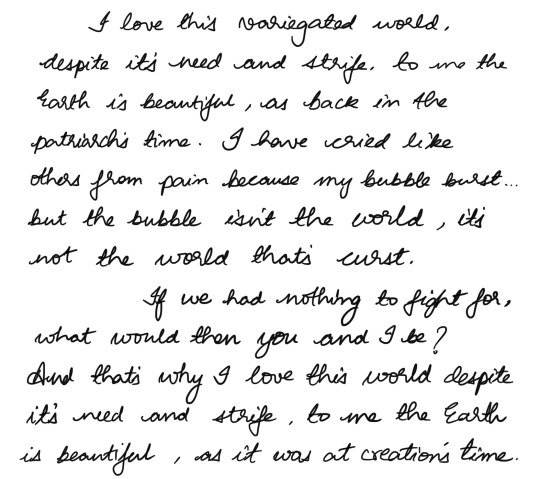 I love this variegated world,
despite it's need and strife. to me the
Earth is beautiful, as back in the
patriarch's time. I have cried like
others from pain because my bubble burst...
but the bubble isn't the world, it's
not the world that's curst.
If we had nothing to fight for,
what would then you and I be?
And that's why I love this world despite
it's need and strife. to me the Earth
is beautiful, as it was at creation's time.